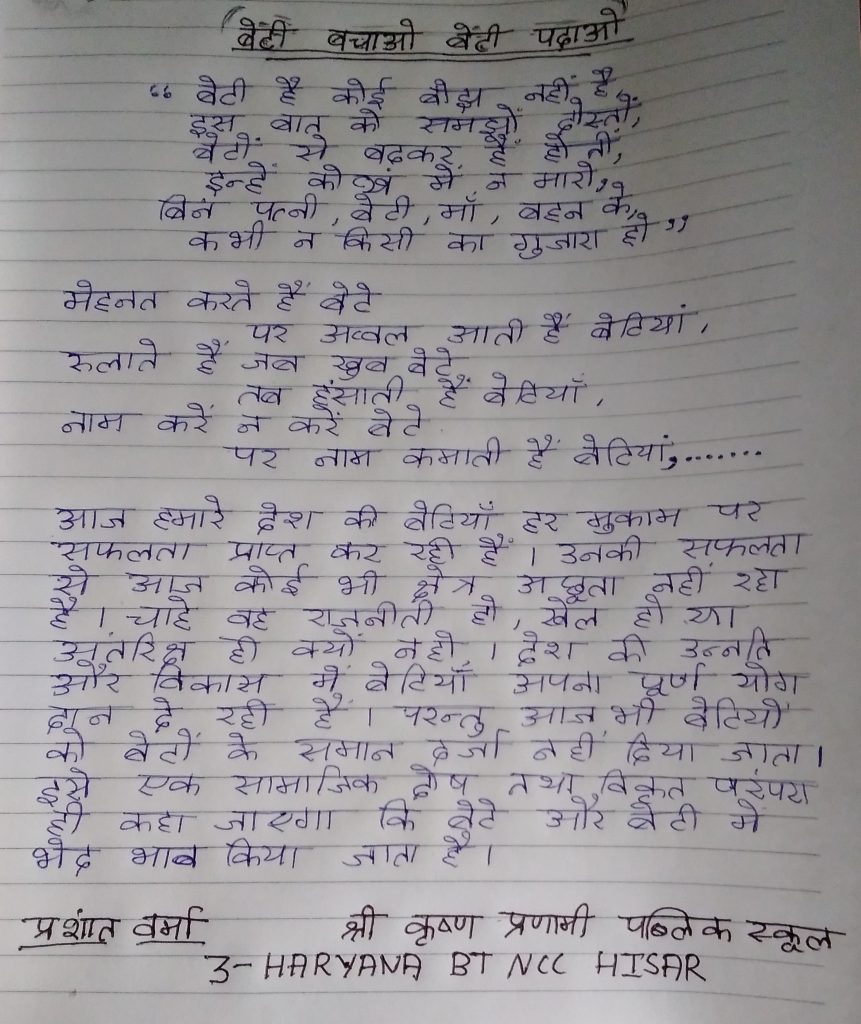 बेटी बचाओ बेटी पढाओ
“ बेटी है कोई बोझ नहीं है,
इस बात को समझो दोस्तों,
बेटों से बढकर हैं होती,
इन्हें कोख में न मारो,
बिन पत्नी, बेटी, माँ, बहन के,
कभी न किसी का गुजारा हो ”
मेहनत करते हैं बेटे
पर अव्वल आती हैं बेटियां,
रुलाते हैं जब खुब बेटे
तब हंसाती हैं बेटियाँ,
नाम करें न करें बेटे
पर नाम कमाती हैं बेटियां,.......
आज हमारे देश की बेटियाँ हर मुकाम पर
सफलता प्राप्त कर रही हैं। उनकी सफलता
से आज कोई भी क्षेत्र अछूता नहीं रहा
है। चाहे वह राजनीती हो, खेल हो या
अंतरिक्ष ही क्यों न हो। देश की उन्नति
और विकास में बेटियाँ अपना पूर्ण योग
दान दे रही हैं। परन्तु आज भी बेटियों
को बेटों के समान दर्जा नहीं दिया जाता।
इसे एक सामाजिक दोष तथा विकृत परंपरा
ही कहा जाएगा कि बेटे और बेटी में
भेद भाव किया जाता है।
प्रशांत वर्मा श्री कृष्ण प्रणामी पब्लिक स्कूल
3-HARYANA BT NCC HISAR